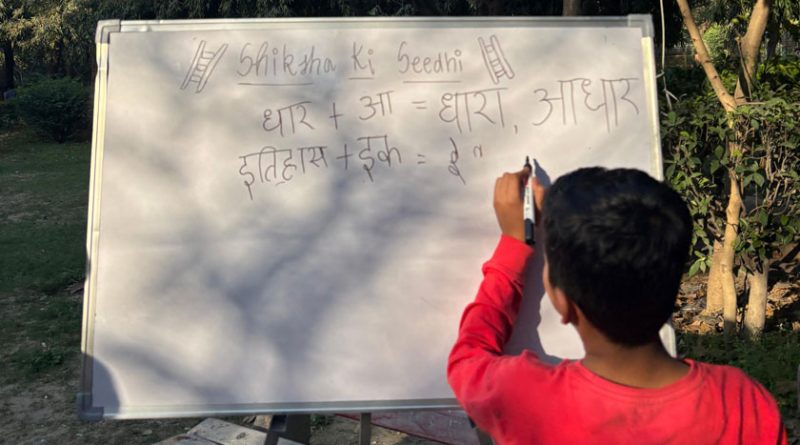 Shiksha Ki Seedhi
धार + आ = धारा, आधार
इतिहास + इक =